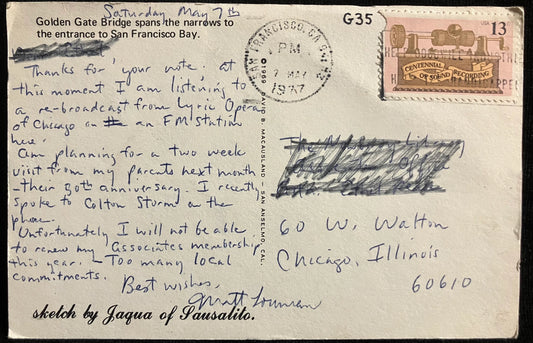 Saturday May 7th
Golden Gate Bridge spans the narrows to
the entrance to San Francisco Bay.
Thanks for your note. at
this moment I am listening to
a re-broadcast from Lyric Opera
of Chicago on an FM station
here.
Am planning for a two week
visit from my parents next month
—their 50th anniversary. I recently
spoke to Colton Storm on the
phone.
Unfortunately I will not be able
to renew my Associates membership
this year. — Too many local
commitments.
Best wishes,
Matt
sketch by Jaqua of Sausalito.
©1969 DAVID B. MACAUSLAND — SAN ANSELMO, CAL.
SAN FRANCISCO, CA
PM
7 MAY
1977
G35
USA 13
CENTENNIAL
OF SOUND RECORDING
60 W. Walton
Chicago, Illinois
60610